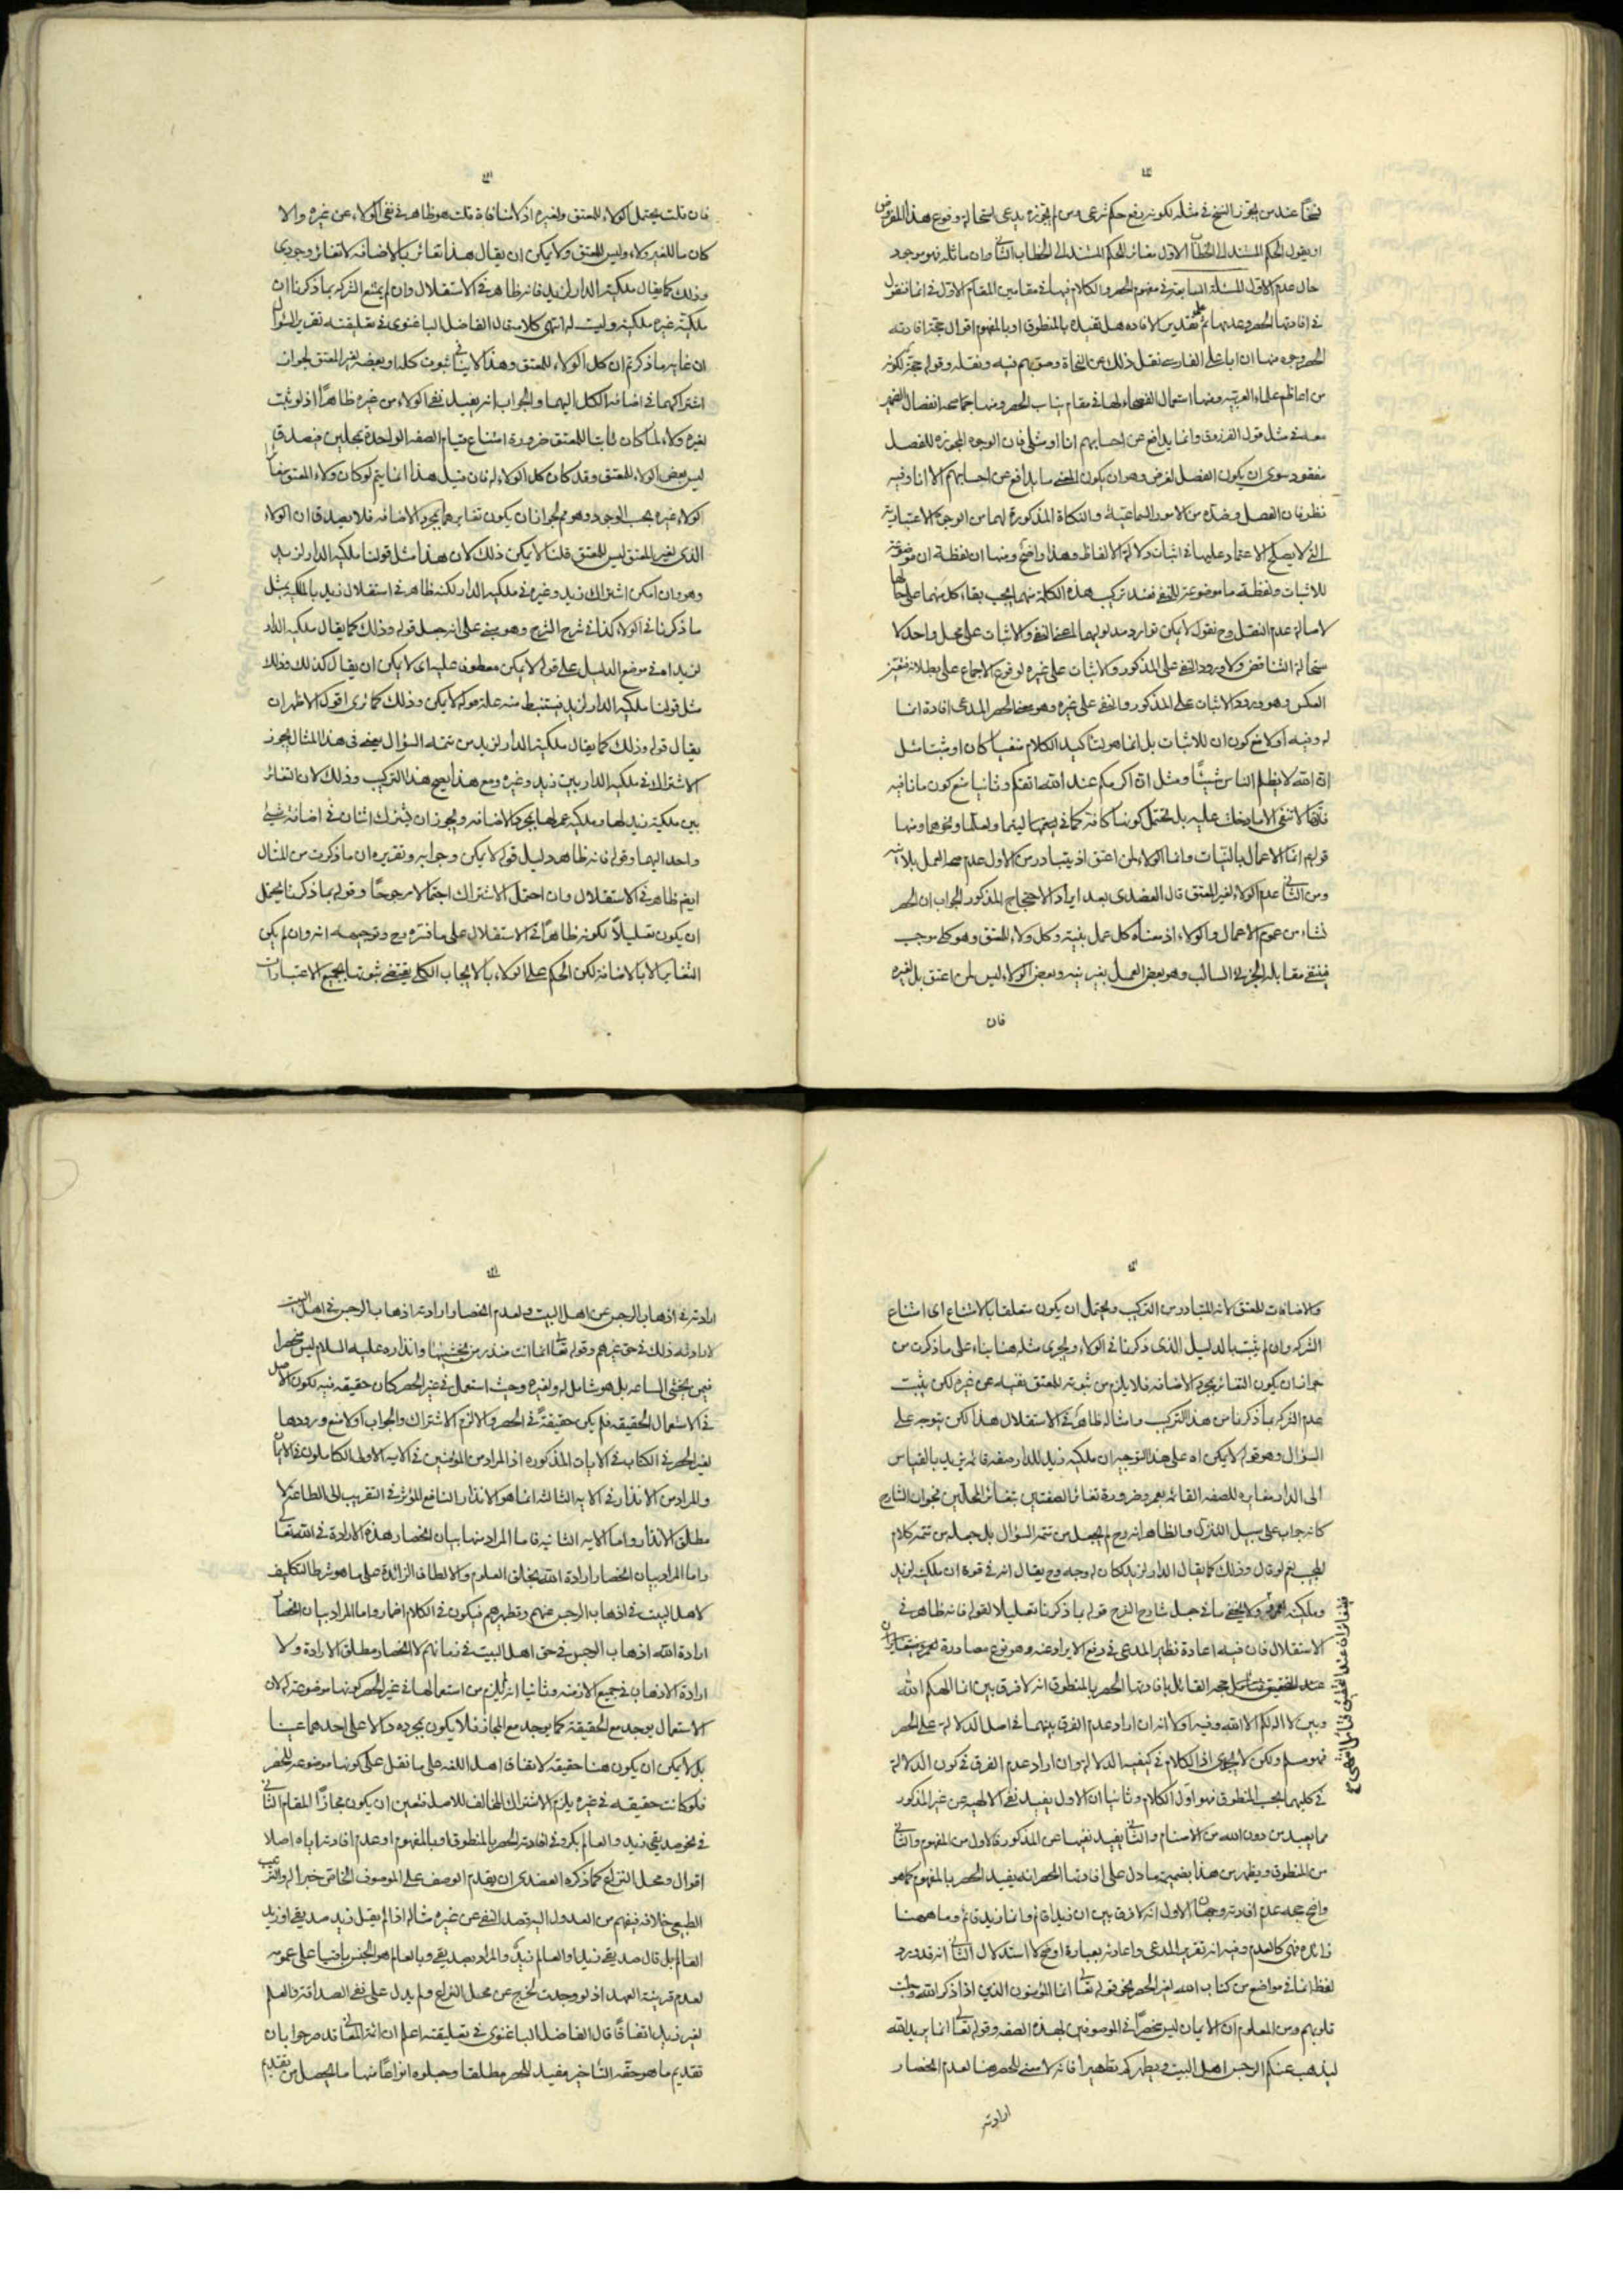 نسخا عند من يجوز النسخ في مثله لكونه رفع حكم شرعى ومن لم يجوزه يدعى استحالة وقوع هذا المفروض
او يقول الحكم المستند الى الخطاب الاول مغاير للحكم المستند الى الخطاب الثانى وان ماثله فهو موجود
حال عدم الاول المسئلة السابعة في مفهوم الحصر والكلام فيها في مقامين المقام الاول في انما فنقول
في افادتها الحصر وعدمها ثم على تقدير الافادة هل تفيده بالمنطوق او بالمفهوم اقوال حجة افادته
الحصر وجوه منها ان ابا على الفارسى نقل ذلك عن النحاة وصوبهم فيه ونقله وقوله حجة لكونه
من اعاظم علماء العربية ومنها استعمال الفصحاء لها في مقام يناسب الحصر ومنها جماعة انفصال الضمير
معه في مثل قول الفرزدق وانما يدافع عن احسابهم انا او مثلى فان الوجوه المجوزة للفصل
مفقود سوى ان يكون الفصل لغرض وهو ان يكون المعنى ما يدافع عن احسابهم الا انا وفيه
نظر فان الفصل وضده من الامور السماعية والنكات المذكورة لهما من الوجوه الاعتبارية
التى لا يصلح الاعتماد عليها في اثبات دلالة الالفاظ وهذا واضح ومنها ان لفظة ان موضوعة
للاثبات ولفظة ما موضوعة للنفى فعند تركيب هذه الكلمة منهما يجب بقاء كل منهما على حالها
لاصالة عدم النقل وح نقول لا يمكن توارد مدلوليهما اعنى النفى والاثبات على محل واحد لا
ستحالة التناقض ولا ورود النفى على المذكور والاثبات على غيره لوقوع الاجماع على بطلانه فتعين
العكس وهو ورود الاثبات على المذكور والنفى على غيره وهو معنى الحصر المدعى افادة انما
له وفيه اولا منع كون ان للاثبات بل انما هو لتاكيد الكلام منفيا كان او مثبتا مثل
ان الله لا يظلم الناس شيئا ومثل ان اكرمكم عند الله اتقيكم وثانيا منع كون ما نافيه
فانها لا تنفى الا ما دخلت عليه بل تحتمل كونها كافة كما في ليتما ولعلما ونحوهما ومنها
قولهم انما الاعمال بالنيات وانما الولاء لمن اعتق اذ يتبادر من الاول عدم صحة العمل بلا نية
ومن الثانى عدم الولاء لغير المعتق قال العضدى بعد ايراد الاحتجاج المذكور الجواب ان الحصر
نشاء من عموم الاعمال والولاء اذ معناه كل عمل بنية وكل ولاء للمعتق وهو كلى موجب
فينتفى مقابله الجزئى السالب وهو بعض العمل بغير نية وبعض الولاء ليس لمن اعتق بل لغيره
فان
فان قلت يحتمل الولاء للمعتق ولغيره اذ لا منافاة قلت هو ظاهر في نفى الولاء عن غيره والا
كان ما للغير ولاء وليس للمعتق ولا يمكن ان يقال هذا تغاير بالاضافة لا تغاير وجودى
وذلك كما يقال ملكية الدار لزيد فانه ظاهر في الاستقلال وان لم يمتنع الشركة بما ذكرنا ان
ملكية غيره ملكية وليست له انتهى كلامه قال الفاضل الباغنوى في تعليقته تقرير السؤال
ان غاية ما ذكرتم ان كل الولاء للمعتق وهذا لا ينافى ثبوت كله او بعضه لغير المعتق لجواز
اشتراكهما في اضافة الكل اليهما والجواب انه يفيد نفى الولاء من غيره ظاهرا اذ لو ثبت
لغيره ولاء لما كان ثابتا للمعتق ضرورة امتناع قيام الصفة الواحدة بمحلين فيصدق
ليس بعض الولاء للمعتق وقد كان كل الولاء له فان قيل هذا انما يتم لو كان ولاء المعتق مغايرا
لولاء غيره بحسب الوجود وهو مم لجواز ان يكون تغايرهما بمجرد الاضافة فلا يصدق ان الولاء
الذى لغير المعتق ليس للمعتق قلنا لا يمكن ذلك لان هذا مثل قولنا ملكية الدار لزيد
وهو وان امكن اشتراك زيد وغيره في ملكية الدار لكنه ظاهر في استقلال زيد بالملكية بمثل
ما ذكرنا في الولاء كذا في شرح الشرح وهو مبنى على انه جعل قوله وذلك كما يقال ملكية الدار
لزيد اه في موضع الدليل على قوله لا يمكن معطوف عليه اى لا يمكن ان يقال كذلك وذلك
مثل قولنا ملكية الدار لزيد فيستنبط منه علة قوله لا يمكن وذلك كما ترى اقول الاظهر ان
يقال قوله وذلك كما يقال ملكية الدار لزيد من تتمة السؤال يعنى في هذا المثال يجوز
الاشتراك في ملكية الدار بين زيد وغيره ومع هذا يصح هذا التركيب وذلك لان التغاير
بين ملكية زيد لها وملكية عمرو لها بمجرد الاضافة ويجوز ان يشترك اثنان في اضافة شئ
واحد اليهما وقوله فانه ظاهر دليل قوله لا يمكن وجوابه وتقريره ان ما ذكرت من المثال
ايضا ظاهر في الاستقلال وان احتمل الاشتراك احتمالا مرجوحا وقوله بما ذكرنا يحتمل
ان يكون تعليلا لكونه ظاهرا في الاستقلال على ما قرره وح وتوجيهه انه وان لم يكن
التغاير الا بالاضافة لكن الحكم على الولاء بالايجاب الكلى يقتضى ثبوتها بجميع الاعتبارات
والاضافات للمعتق لانه المتبادر من التركيب ويحتمل ان يكون متعلقا بالامتناع اى امتناع
الشركة وان لم يثبت بالدليل الذى ذكرنا في الولاء ويجرى مثله هنا بناء على ما ذكرت من
جواز ان يكون التغاير بمجرد الاضافة فلا يلزم من ثبوته للمعتق نفيه عن غيره لكن يثبت
عدم الشركة بما ذكرنا من هذا التركيب وامثاله ظاهر في الاستقلال هذا لكن يتوجه على
السؤال وهو قوله لا يمكن اه على هذا التوجيه ان ملكية زيد للدار صفة قائمة بزيد بالقياس
الى الدار مغايره للصفة القائمة بعمرو ضرورة تغاير الصفتين بتغاير المحلين فجواب الشارح
كانه جواب على سبيل التنزل والظاهر انه وح لم يجعل من تتمة السؤال بل جعله من تتمة كلام
المجيب نعم لو قال وذلك كما يقال الدار لزيد لكان له وجه وح يقال انه في قوة ان ملكيته لزيد
وملكيته لعمرو ولا يخفى ما في جعل شارح الشرح قوله بما ذكرنا تعليلا لقوله فانه ظاهر في
الاستقلال فان فيه اعادة نظير المدعى في دفع الايراد عنه وهو نوع مصادرة
حجة القائل بافادتها الحصر بالمنطوق انه لا فرق بين انما الهكم الله
وبين لا اله لكم الا الله وفيه اولا انه ان اراد عدم الفرق بينهما في اصل الدلالة على الحصر
فهو مسلم ولكن لا يجدى اذ الكلام في كيفية الدلالة وان اراد عدم الفرق في كون الدلالة
في كليهما بحسب المنطوق فهو اول الكلام وثانيا ان الاول يفيد نفى الالهية عن غير المذكور
مما يعبد من دون الله من الاصنام والثانى يفيد نفيها عن المذكور فالاول من المفهوم والثانى
من المنطوق ويظهر من هذا بضميمة ما دل على افادتها الحصر انه يفيد الحصر بالمفهوم كما هو
واضح حجة عدم افادته وجهان الاول انه لا فرق بين ان زيدا قائم وانما زيد قائم وما ههنا
زائدة فهى كالعدم وفيه انه تقرير المدعى واعادته بعبارة اوضح لا استدلال الثانى انه قد ورد
لفظ انما في مواضع من كتاب الله لغير الحصر نحو قوله تعالى انما المؤمنون الذين اذا ذكر الله وجلت
قلوبهم ومن المعلوم ان الايمان ليس منحصرا في الموصوفين بهذه الصفة وقوله تعالى انما يريد الله
ليذهب عنكم الرجس اهل البيت ويطهركم تطهيرا فانه لا معنى للحصر هنا لعدم انحصار
ارادته
ارادته في اذهاب الرجس عن اهل البيت ولعدم انحصار ارادته اذهاب الرجس في اهل البيت
لارادته ذلك في حق غيرهم وقوله تعالى انما انت منذر من يخشيها وانذاره عليه السلام ليس منحصرا
فيمن يخشى الساعة بل هو شامل له ولغيره وحيث استعمل في غير الحصر كان حقيقة فيه لكون الاصل
في الاستعمال الحقيقة فلم يكن حقيقة في الحصر والا لزم الاشتراك والجواب اولا منع ورودها
لغير الحصر في الكتاب في الايات المذكورة اذ المراد من المؤمنين في الاية الاولى الكاملون في الايمان
والمراد من الانذار في الاية الثالثة انما هو الانذار النافع المؤثر في التقريب الى الطاعة لا
مطلق الانذار واما الاية الثانية فاما المراد منها بيان انحصار هذه الارادة في الله تعالى
واما المراد بيان انحصار ارادة الله بخلق العلوم والالطاف الزائدة على ما هو شرط التكليف
لاهل البيت في اذهاب الرجس عنهم وتطهيرهم فيكون في الكلام اضمار واما المراد بيان انحصار
ارادة الله اذهاب الرجس في حق اهل البيت في زمانهم لا انحصار مطلق الارادة ولا
ارادة الاذهاب في جميع الازمنة وثانيا انه لا يلزم من استعمالها في غير الحصر كونها موضوعة له لان
الاستعمال يوجد مع الحقيقة كما يوجد مع المجاز فلا يكون بمجرده دالا على احدهما عينا
بل لا يمكن ان يكون هنا حقيقة لاتفاق اهل اللغة على ما نقل على كونها موضوعة للحصر
فلو كانت حقيقة في غيره يلزم الاشتراك المخالف للاصل فتعين ان يكون مجازا المقام الثانى
في نحو صديقى زيد والعالم بكر وفي افادته الحصر بالمنطوق او بالمفهوم او عدم افادته اياه اصلا
اقوال ومحل النزاع كما ذكره العضدى ان يقدم الوصف على الموصوف الخاص خبرا له والترتيب
الطبيعى خلافه فيفهم من العدول اليه قصد النفى عن غيره مثاله اذا لم يقل زيد صديقى او زيد
العالم بل قال صديقى زيد او العالم زيد والمراد بصديقى وبالعالم هو الجنس باقيا على عمومه
لعدم قرينة العهد اذ لو وجدت لخرج عن محل النزاع ولم يدل على نفى الصداقة والعلم
لغير زيد اتفاقا قال الفاضل الباغنوى في تعليقته اعلم ان ائمة المعانى قد صرحوا بان
تقديم ما هو حقه التاخير مفيد للحصر مطلقا وجعلوه انواعا منها ما يحصل من تقديم